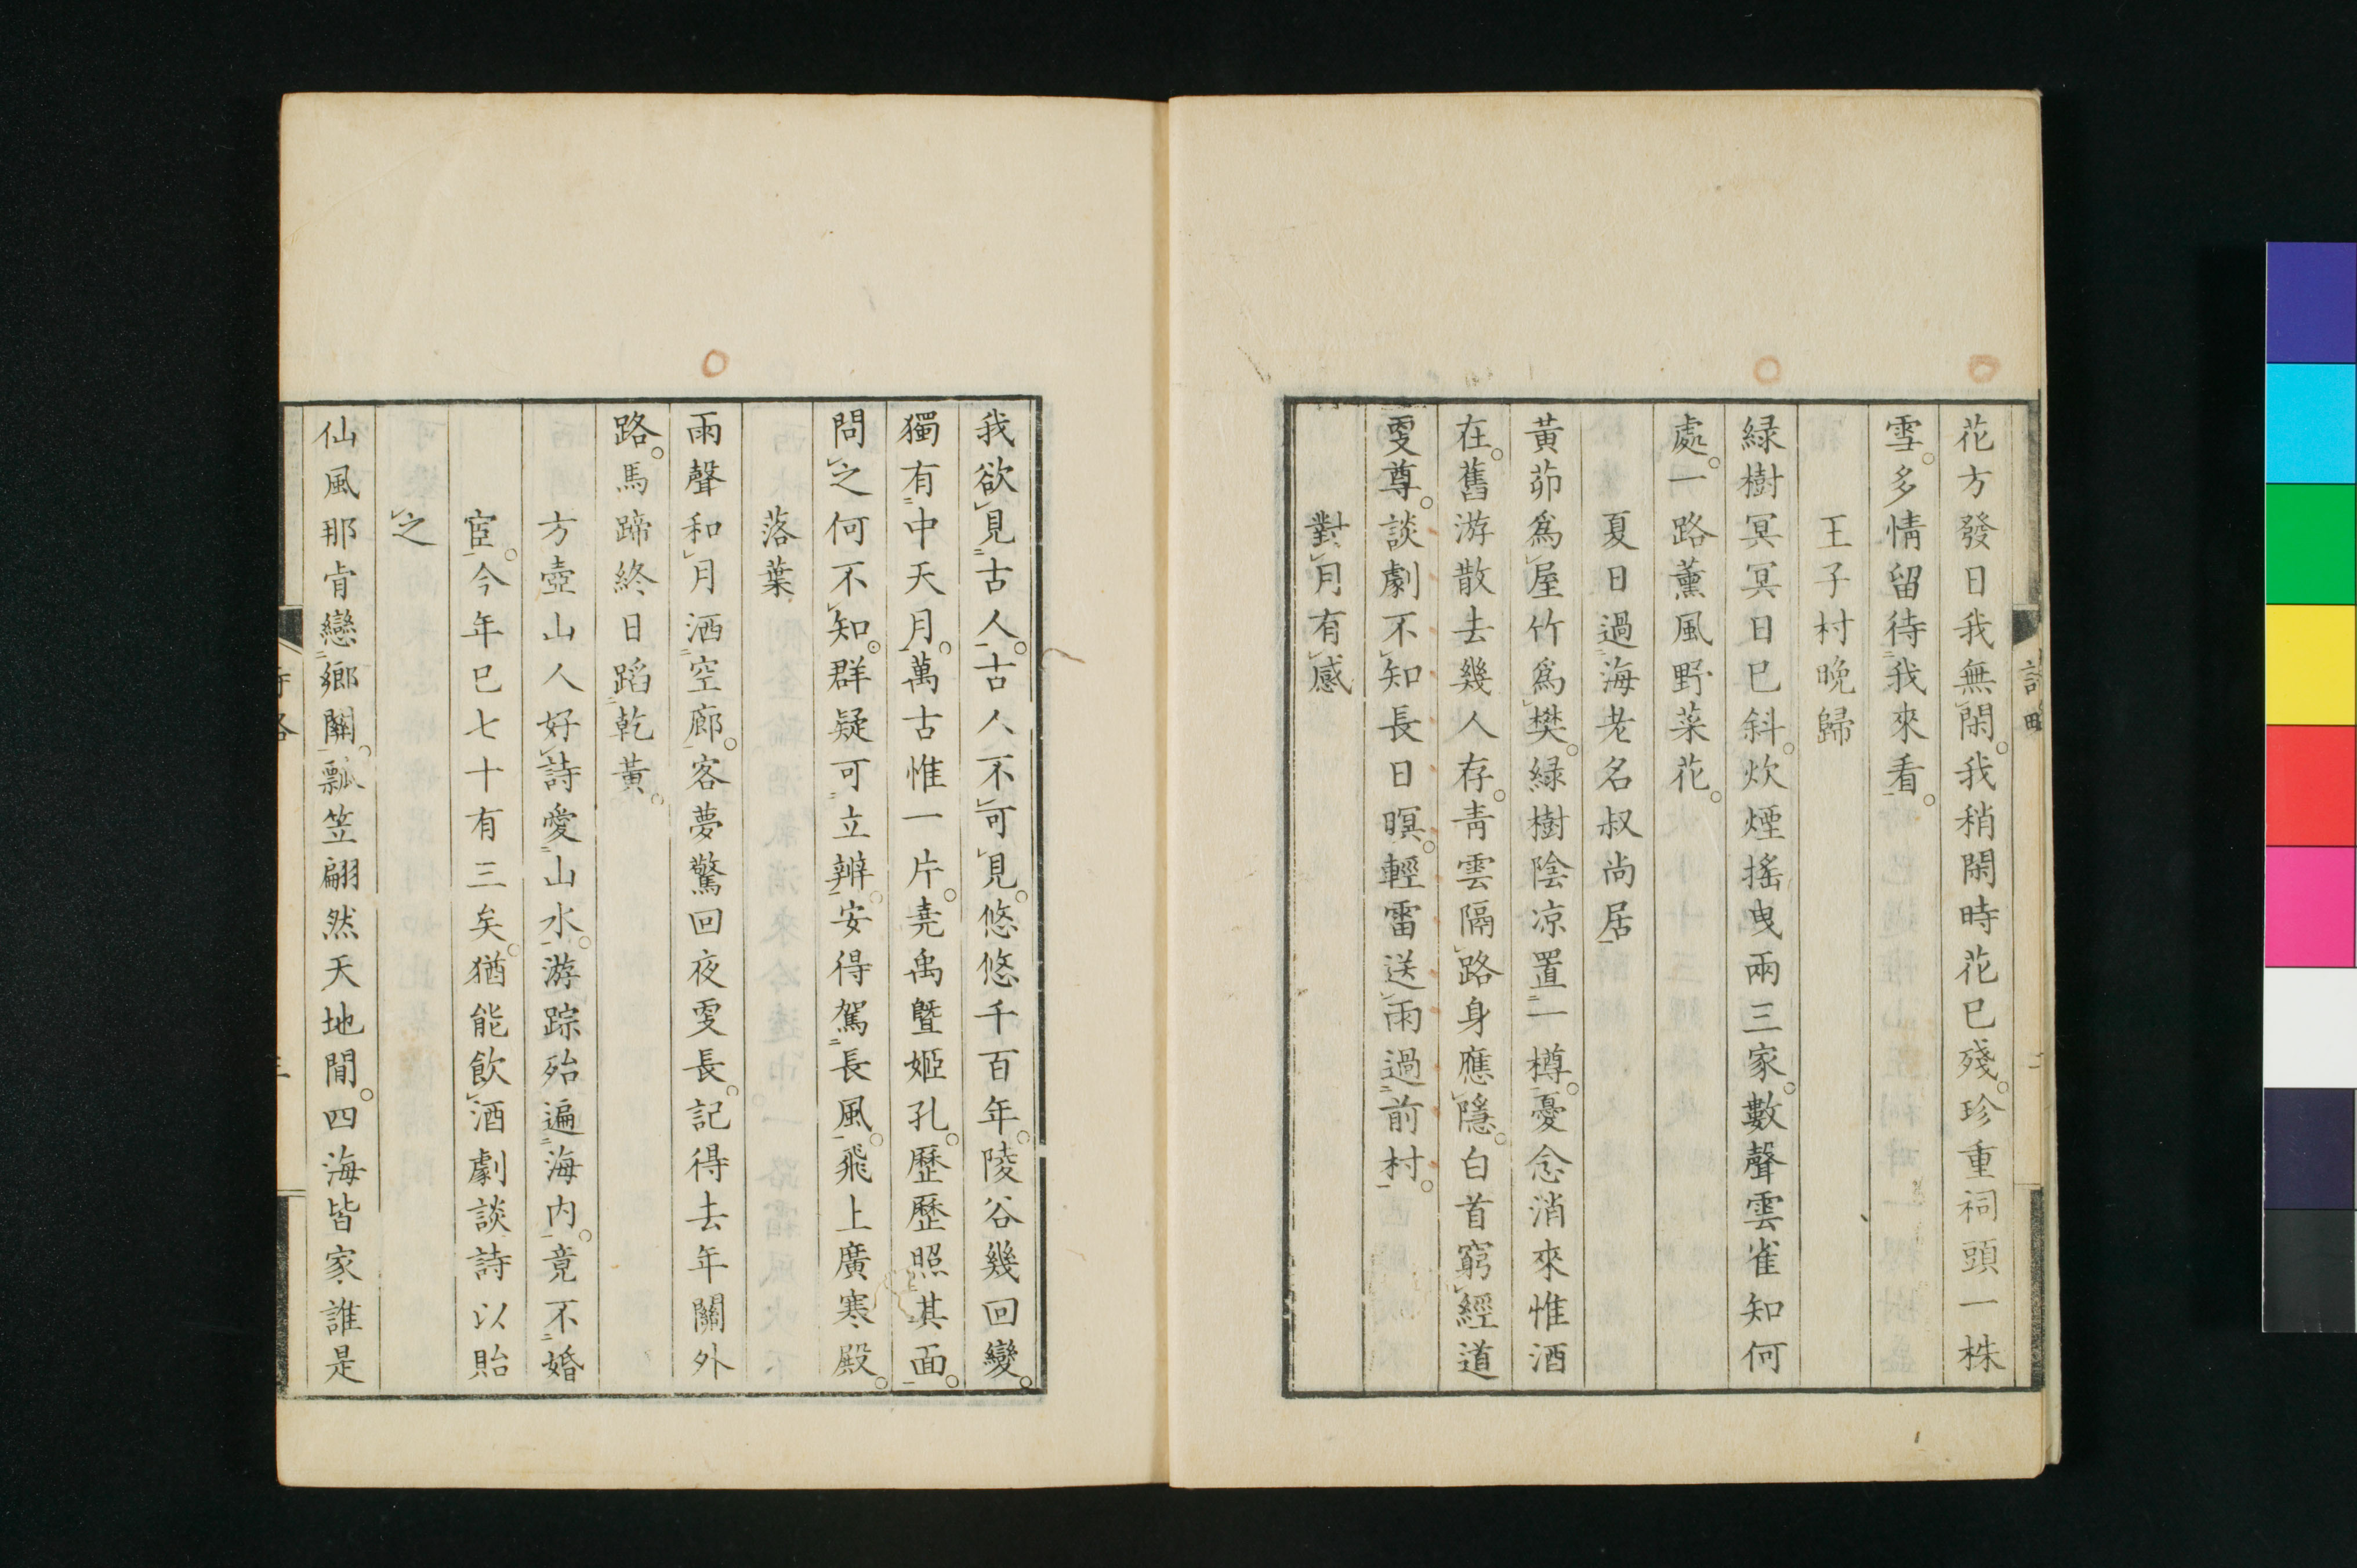 花方發日我無閑。我稍閑時花已殘。珍重祠頭一株
雪。多情留待我來看。
王子村晩歸
緑樹冥冥日已斜。炊煙搖曳兩三家。數聲雲雀知何
處。一路薫風野菜花。
夏日過海老名叔尚居
黃茆爲屋竹爲樊。緑樹陰凉置一樽。憂念消來惟酒
在。舊游散去幾人存。靑雲隔路身應隱。白首窮經道
叜尊。談劇不知長日暝。輕雷送雨過前村。
對月有感
我欲見古人。古人不可見。悠悠千百年。陵谷幾回變。
獨有中天月。萬古惟一片。堯禹曁姬孔。歷歷照其面。
問之何不知。群疑可立辨。安得駕長風。飛上廣寒殿。
落葉
雨聲和月洒空廊。客夢驚回夜叜長。記得去年關外
路。馬蹄終日蹈乾黃。
方壺山人好詩愛山水。游踪殆遍海内。竟不婚
宦。今年已七十有三矣。猶能飮酒劇談詩以貽
之
仙風那肯戀鄕關。瓢笠翩然天地間。四海皆家誰是